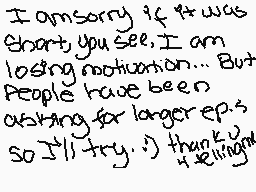 I am sorry if it was
short, you see, I am
losing motivation... But
people have been
asking for longer ep.s
so I'll try. :) thank u
4 telling me